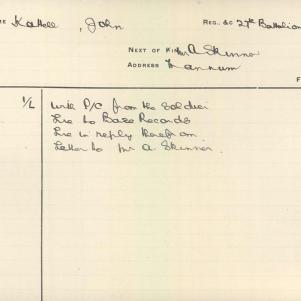 ME Kattell, John REG., &C 27th Battalion
NEXT OF KIN Mr A Skinner
ADDRESS Mannum
F
1/L With P/C from the Soldier
Lre to Base Records
Lre in reply
Letter to Mr A. Skinner.